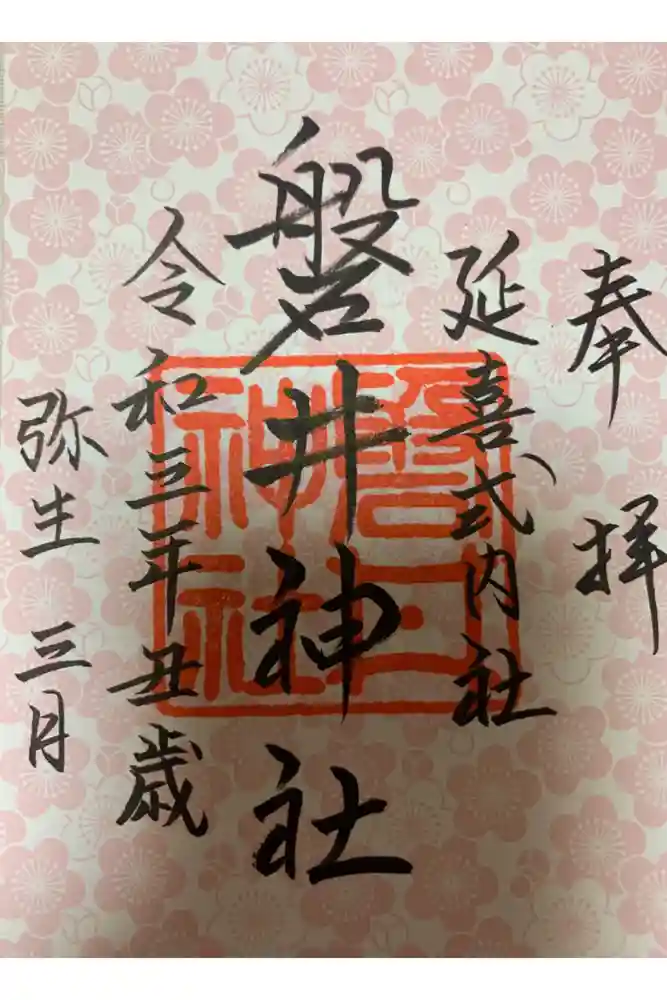 奉拝
延喜式内社
磐井神社
令和三年丑歳
弥生 三月
磐井
神社